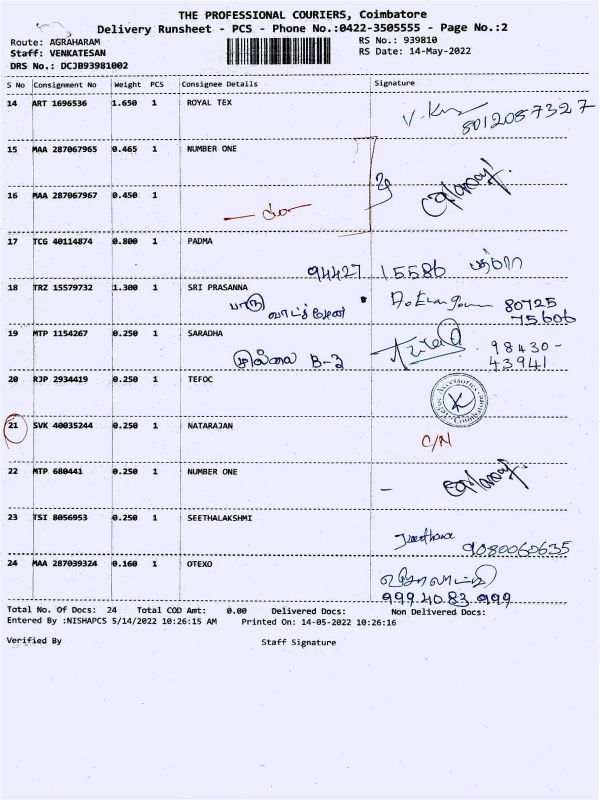 THE PROFESSIONAL COURIERS, Coimbatore
Delivery Runsheet - PCS - Phone No.:0422-3505555 - Page No.:2
Route: AGRAHARAM RS No.: 939810
Staff: VENKATESAN RS Date: 14-May-2022
DRS No.: DCJB93981002
S No Consignment No Weight PCS Consignee Details Signature
14 ART 1696536 1.650 1 ROYAL TEX
8012057327
15 MAA 287067965 0.465 1 NUMBER ONE
16 MAA 287067967 0.450 1
17 TCG 40114874 0.800 1 PADMA
94427 15586 பத்மா
18 TRZ 15579732 1.300 1 SRI PRASANNA
80725
75606
19 MTP 1154267 0.250 1 SARADHA
முல்லை B-3 98430-
43941
20 RJP 2934419 0.250 1 TEFOC
21 SVK 40035244 0.250 1 NATARAJAN
C/N
22 MTP 680441 0.250 1 NUMBER ONE
23 TSI 8056953 0.250 1 SEETHALAKSHMI
9080060635
24 MAA 287039324 0.160 1 OTEXO
999 40 83 999
Total No. Of Docs: 24 Total COD Amt: 0.00 Delivered Docs: Non Delivered Docs:
Entered By :NISHAPCS 5/14/2022 10:26:15 AM Printed On: 14-05-2022 10:26:16
Verified By Staff Signature